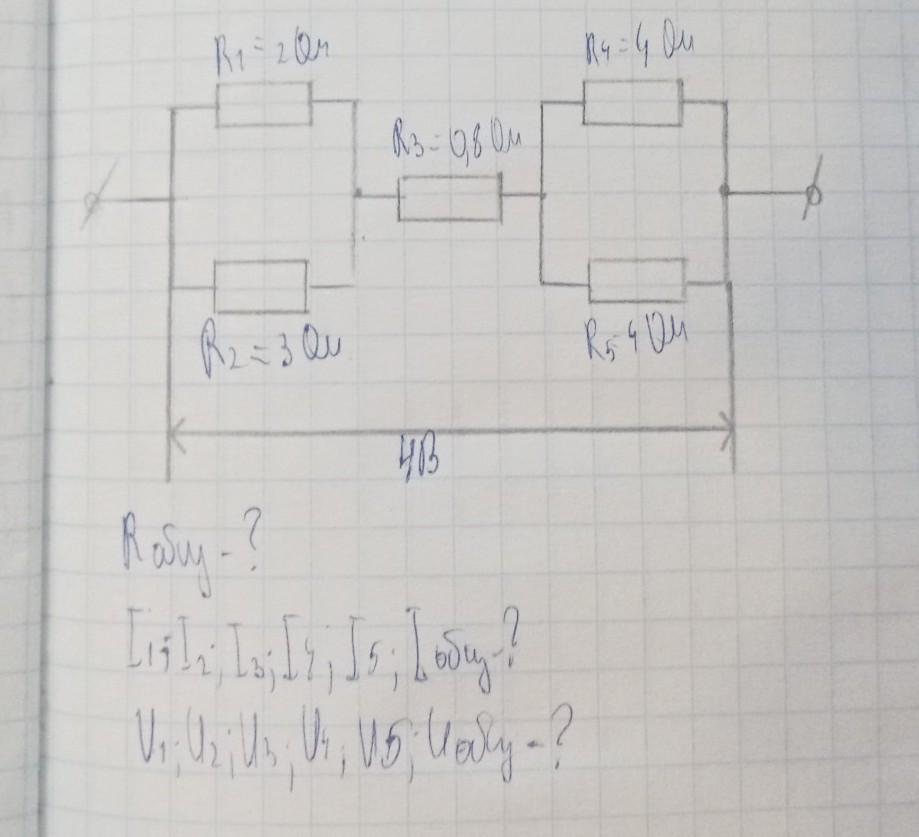 R1=2 Ом
R4=4 Ом
R3=0,8 Ом
R2=3 Ом
R5=4 Ом
4В
Rобщ-?
I1; I2; I3; I4; I5; Iобщ-?
U1; U2; U3; U4; U5; Uобщ-?